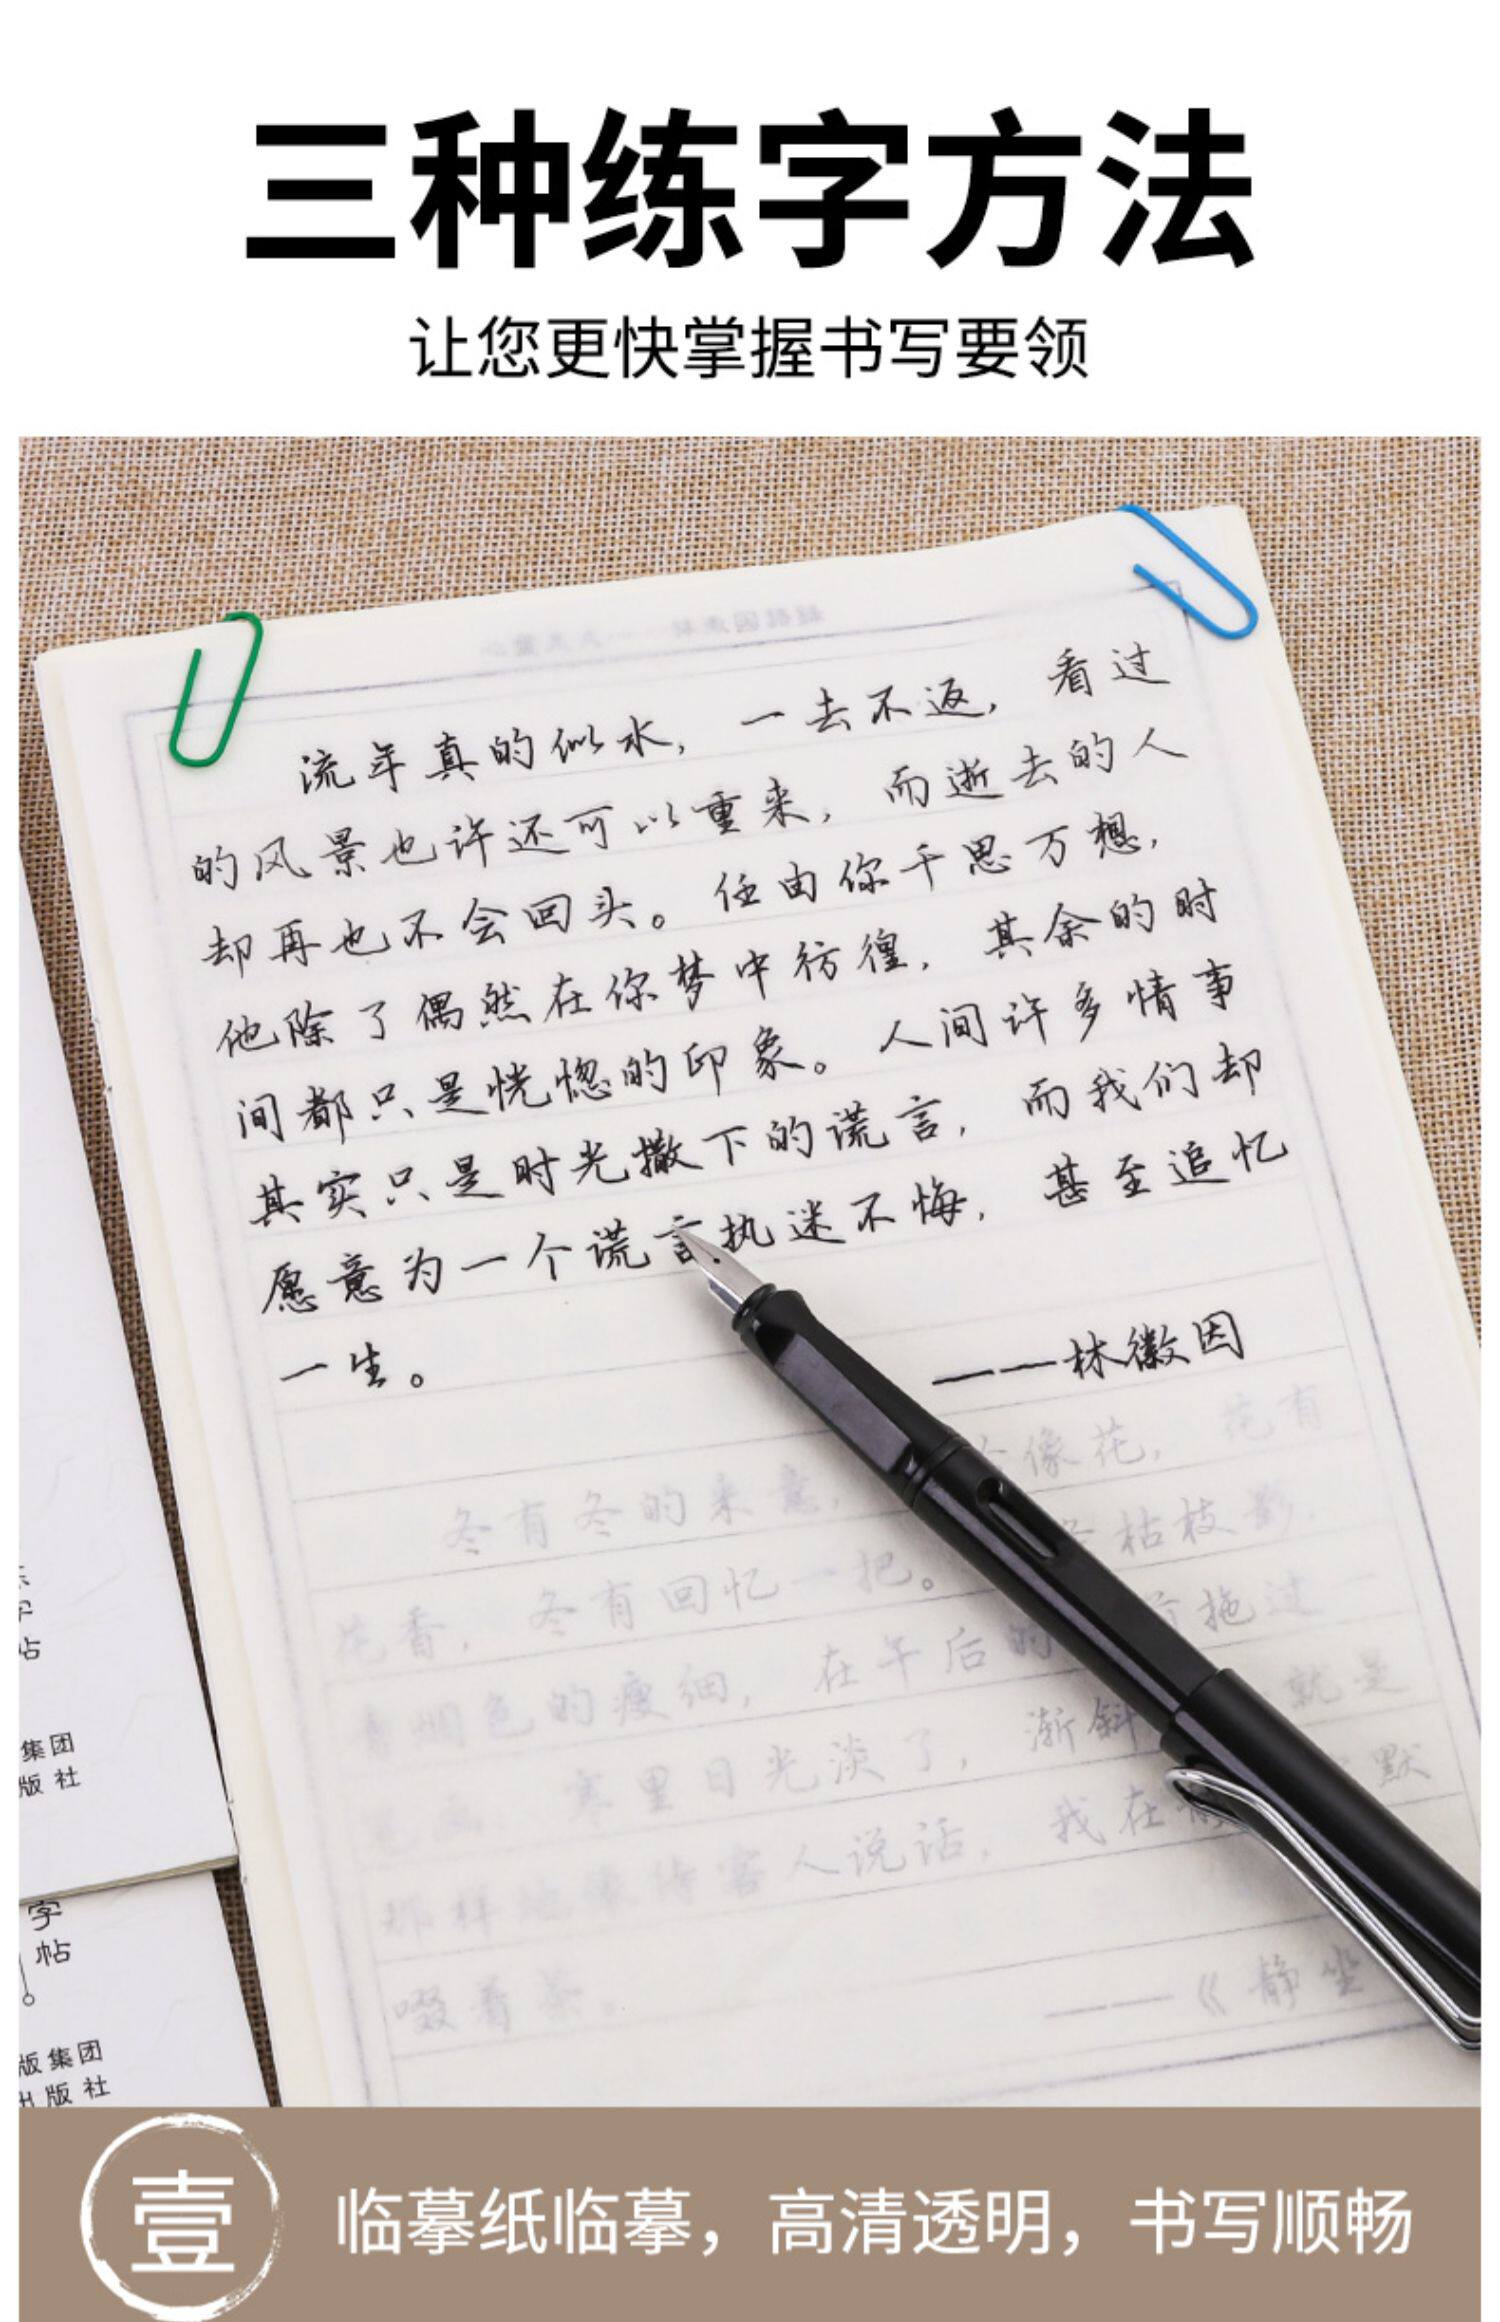 三种练字方法
让您更快掌握书写要领
流年真的似水，一去不返，看过
的风景也许还可以重来，而逝去的人
却再也不会回头。任由你千思万想，
他除了偶然在你梦中彷徨，其余的时
间都只是恍惚的印象。人间许多情事
其实只是时光撒下的谎言，而我们却
愿意为一个谎言执迷不悔，甚至追忆
一生。
——林徽因
冬有冬的来意，
像花，花有
花香，冬有回忆一把。
枯枝影，
色的瘦细，在午后的
拖过一
寒里日光淡了，渐斜
就是
那样地像待客人说话，我在
默
啜着茶。
——《静坐
集团
版社
字
帖
版集团
出版社
壹
临摹纸临摹，高清透明，书写顺畅